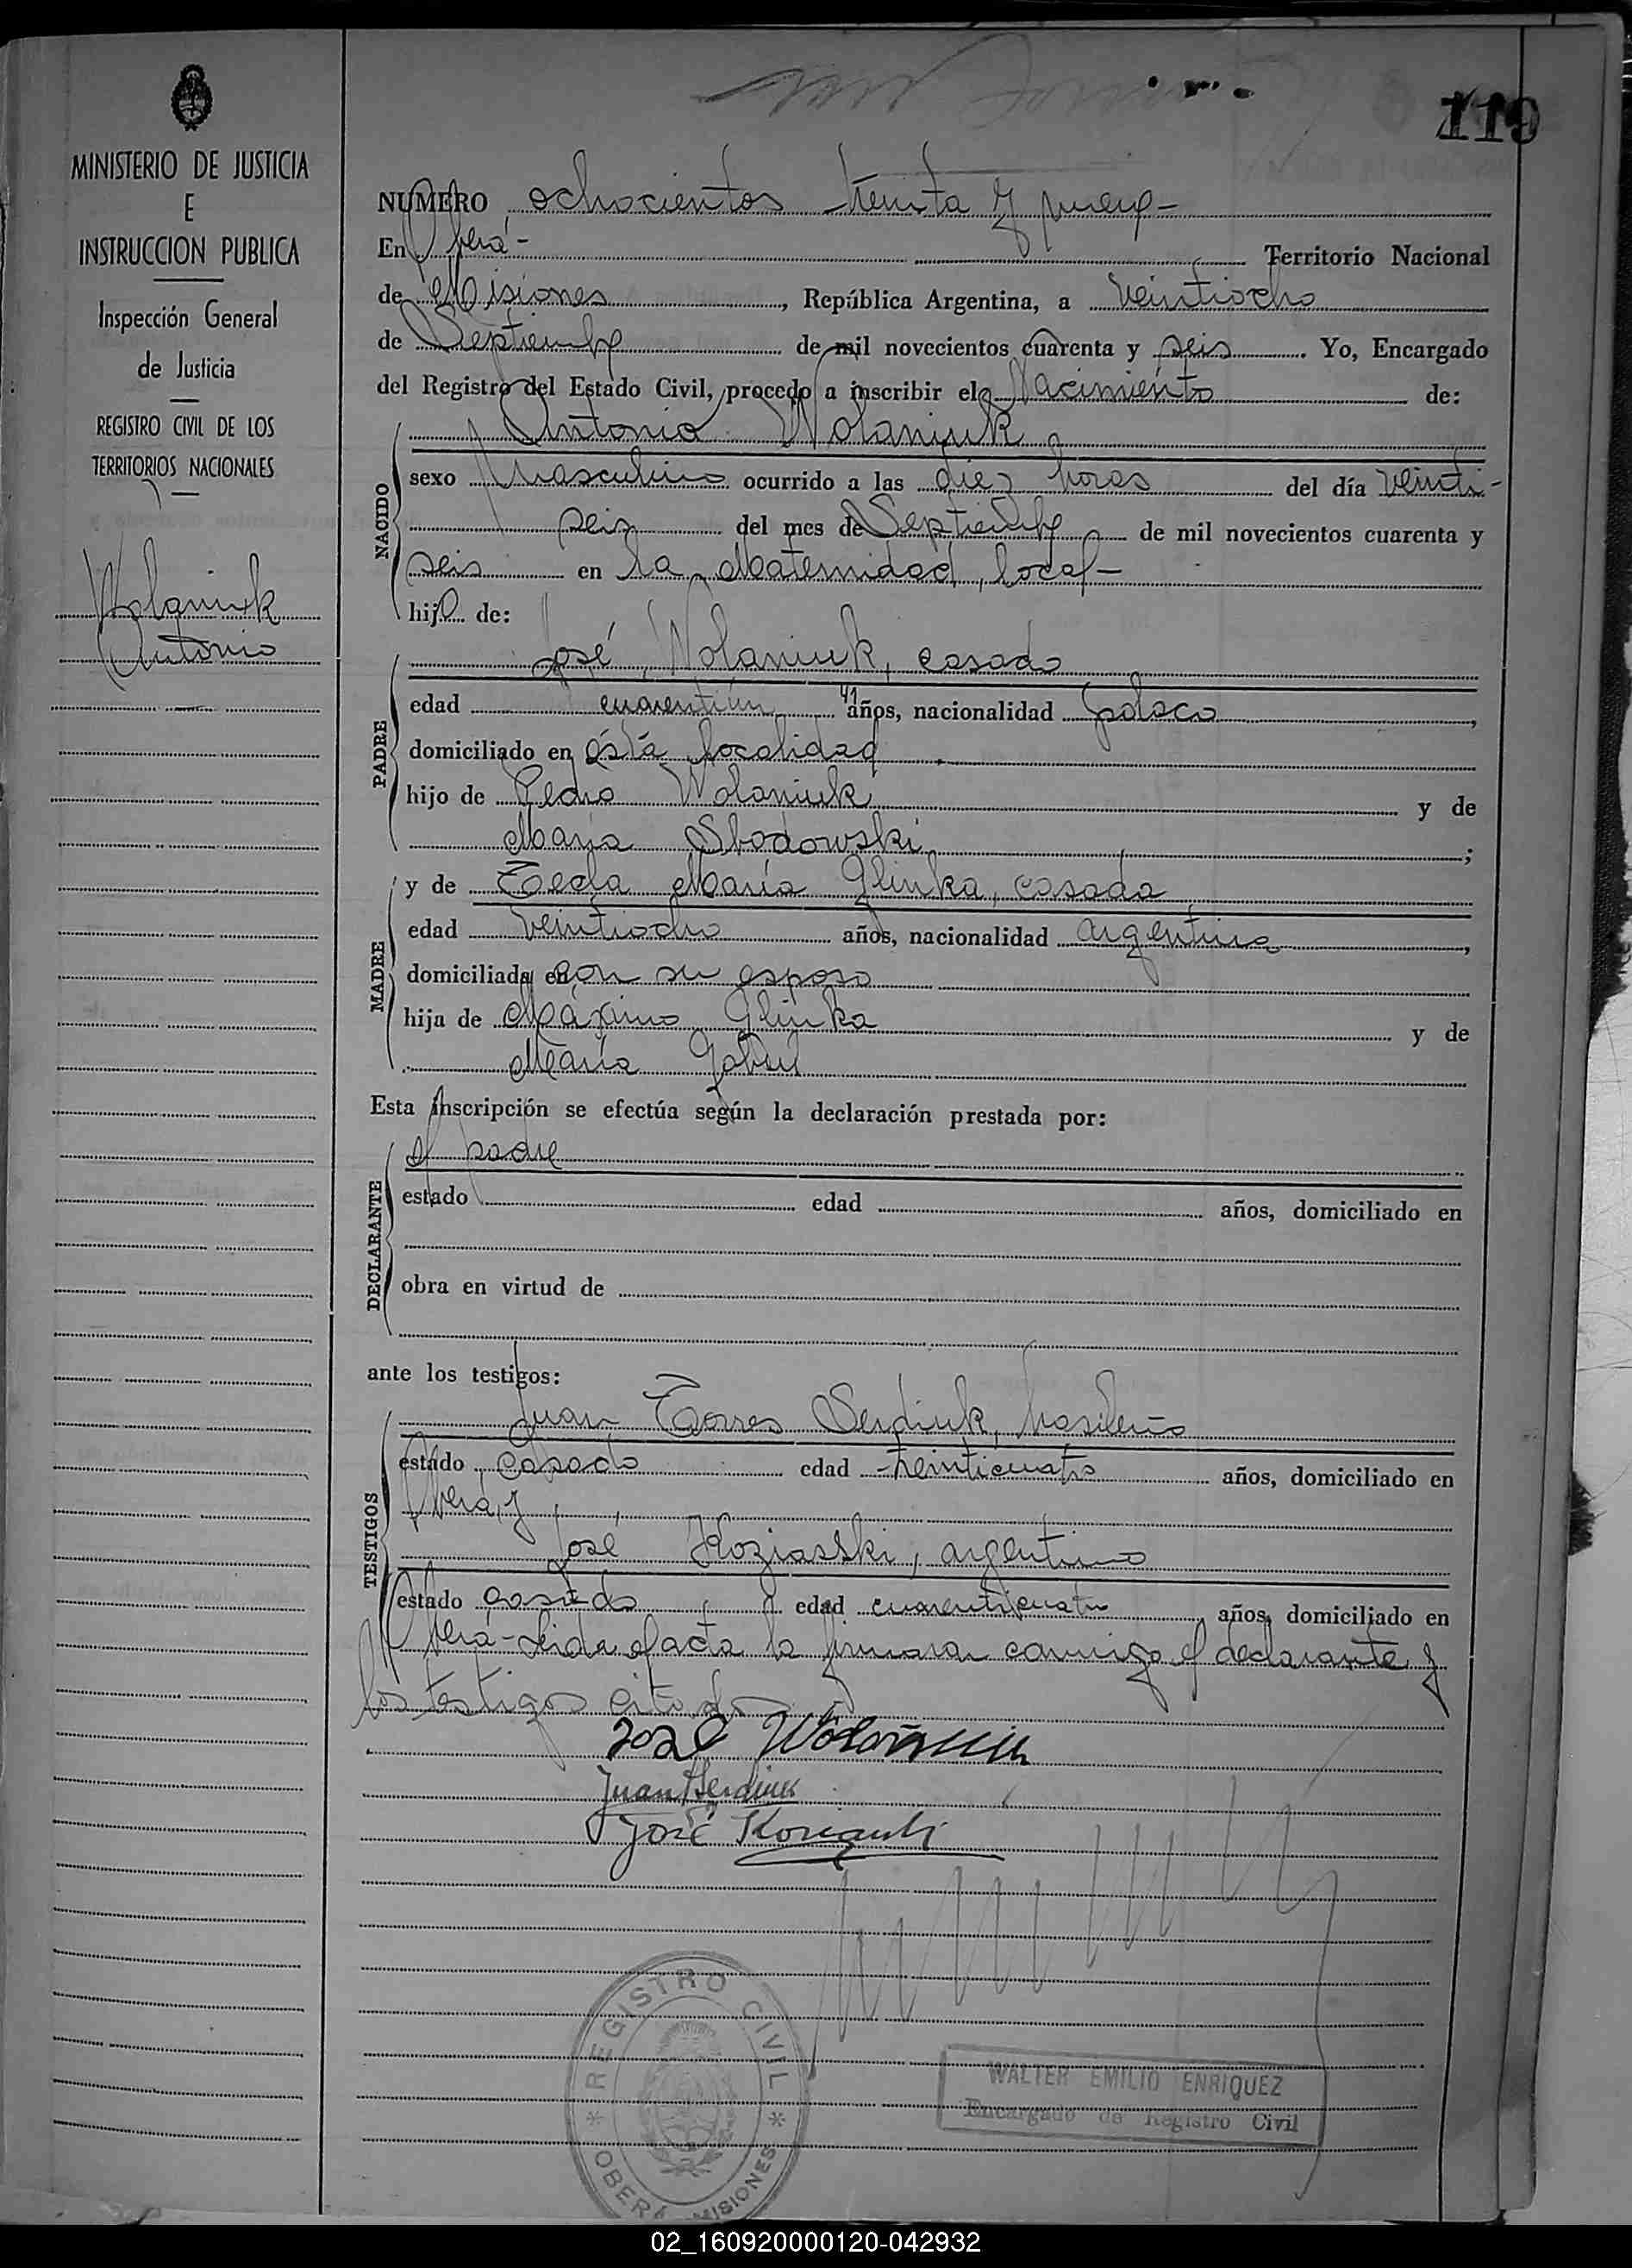 119
MINISTERIO DE JUSTICIA
E
INSTRUCCION PUBLICA
Inspección General
de Justicia
REGISTRO CIVIL DE LOS
TERRITORIOS NACIONALES
Wolaniuk
Antonio
NUMERO ochocientos treinta y nueve-
En Oberá- Territorio Nacional
de Misiones, República Argentina, a veintiocho
de Septiembre de mil novecientos cuarenta y seis. Yo, Encargado
del Registro del Estado Civil, procedo a inscribir el Nacimiento de:
Antonio Wolaniuk
NACIDO
sexo Masculino ocurrido a las diez horas del día veinti-
seis del mes de Septiembre de mil novecientos cuarenta y
seis en la Maternidad local-
hijo de:
José Wolaniuk, casado
PADRE
edad cuarentiún 41 años, nacionalidad polaco,
domiciliado en ésta localidad
hijo de Pedro Wolaniuk y de
María Slodowski;
MADRE
y de Tecla María Glinka, casada
edad veintiocho años, nacionalidad argentina,
domiciliada en con su esposo
hija de Máximo Glinka y de
María
Esta inscripción se efectúa según la declaración prestada por:
DECLARANTE
el padre
estado edad años, domiciliado en
obra en virtud de
ante los testigos:
TESTIGOS
Juan Torres Serdiuk, brasileño
estado casado edad treinticuatro años, domiciliado en
Oberá, y
José Koziarski, argentino
estado casado edad cuarenticuatro años, domiciliado en
Oberá-Leida el acta la firmaron conmigo el declarante y
los testigos citados
José Wolaniuk
Juan Serdiuk
José Koziarski
REGISTRO CIVIL
* OBERÁ MISIONES *
WALTER EMILIO ENRIQUEZ
Encargado de Registro Civil
02_160920000120-042932